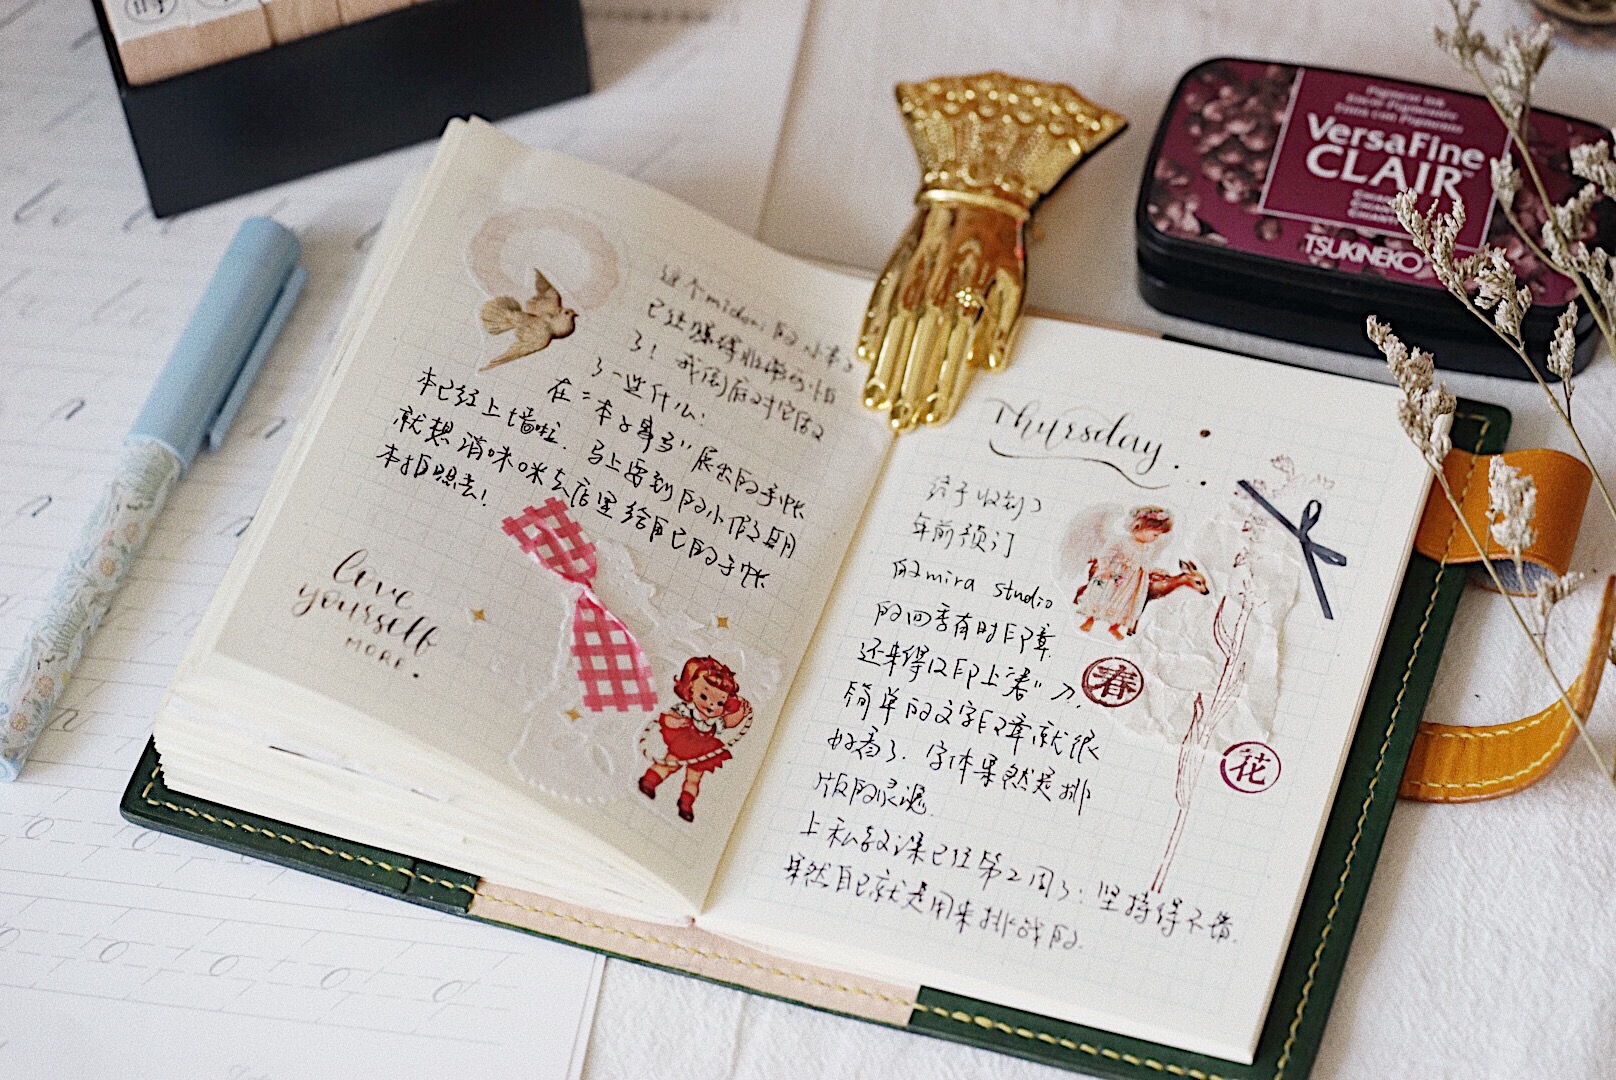 这个midori的小本子
已经爆得非常可怕
了！我周后对它做
了一些什么：
在“本子事务”展出的手帐
本已经上墙啦．马上要到的小假期
就想消咪咪去店里给自己的手帐
本拍照去！
love
yourself
MORE.
Thursday.
终于收到了
年前预订
的mira studio
的四季有时印章．
还来得及印上“春”了．
简单的文字印章就很
好看了．字体果然是排
版的灵魂．
上私教课已经第2周了：坚持得不错．
果然自己就是用来挑战的．
春
花
Pigment Ink
VersaFine
CLAIR
TSUKINEKO